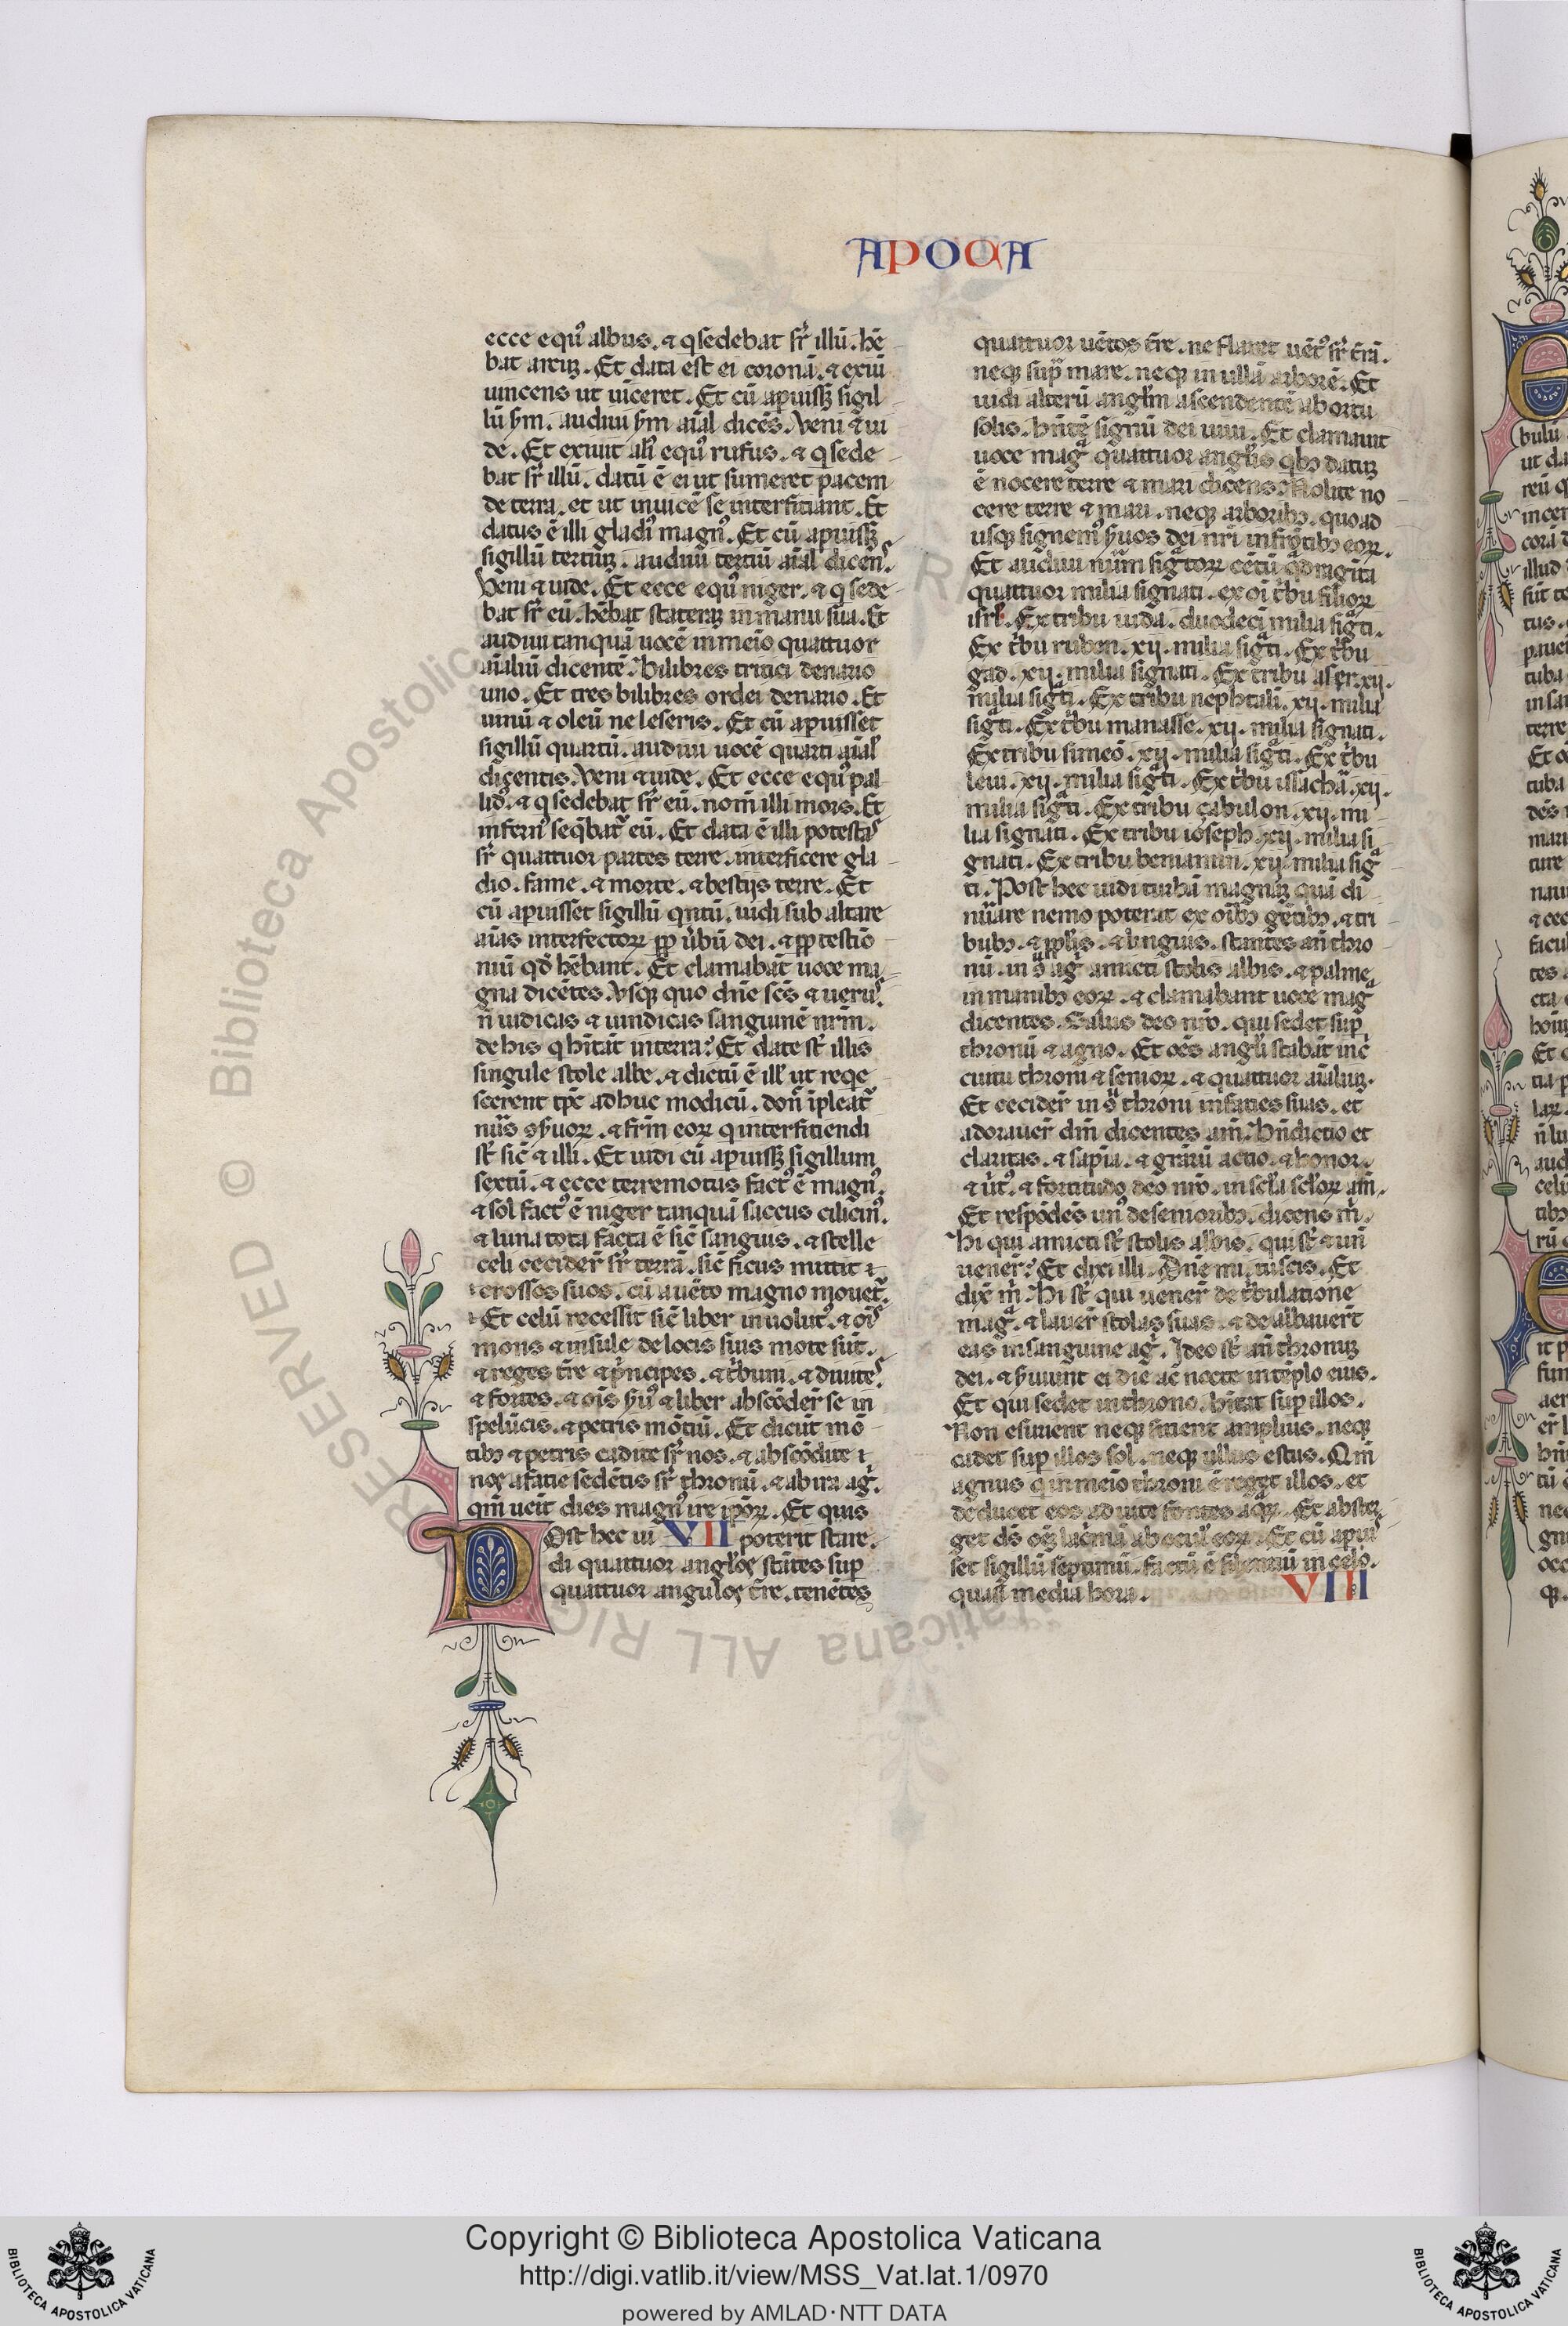 APOCA
ecce equꝰ albus. ⁊ q sedebat sr̄ illū. hē
bat arcuꝫ. Et data est ei coronā. ⁊ exiuı
uincens ut uīceret. Et cū apuissꝫ sigil
lū ẜm. audiui ẜm aīal dicēs. Veni ⁊ ui
de. Et exiuit alꝰ equꝰ rufus. ⁊ q sede
bat sr̄ illū. datū ē ei ut sumeret pacem
de terra. et ut inuicē se interfitiant. Et
datus ē illi gladꝰ magnꝰ. Et cū apuissꝫ
sigillū tertiuꝫ. audiui tertiū aīal dicenꝭ.
Veni ⁊ uide. Et ecce equꝰ niger. ⁊ q sede
bat sr̄ eū. hēbat stateraꝫ in manu sua. Et
audiui tanquā uocē in meıo quattuor
aīaliū dicentē. bilibres tritici denario
uno. Et tres bilibres ordei denario. Et
uinū ⁊ oleū ne leseris. Et cū apuisset
sigillū quartū. audiui uocē quarti aīal
dicentis. Veni ⁊ uide. Et ecce equꝰ pal
lidꝰ. ⁊ q sedebat sr̄ eū. nom̄ illi mors. Et
infernꝰ seq̄bat᷑ eū. Et data ē illi potestaꝭ
sr̄ quattuor partes terre. interficere gla
dio. fame. ⁊ morte. ⁊ bestijs terre. Et
cū apuisset sigillū qntū. uidi sub altare
aīas interfectoꝝ ꝓp u̇bū dei. ⁊ ꝓp testīo
niū qd̄ hēbant. Et clamabāt uoce ma
gna dicētes. Vsqꝫ quo dn̄e scs̄ ⁊ uerꝰ
n̄ iudicas ⁊ uindicas sanguinē nr̄m.
de his q hītāt in terra? Et date st̄ illis
singule stole albe. ⁊ dictū ē ill' ut reqe
scerent tp̄c adhuc modicū. don̄ īpleat᷑
nūs ꝯẜuoꝝ. ⁊ fr̄m eoꝝ q interfitiendi
st̄ sic̄ ⁊ illi. Et uidi cū apuissꝫ sigillum
sextū. ⁊ ecce terremotus factꝰ ē magnꝰ.
⁊ sol factꝰ ē niger tanquā saccus cilicinꝰ.
⁊ luna tota facta ē sic̄ sanguis. ⁊ stelle
celi cecider̄ sr̄ terrā. sic̄ ficus mittit
grossos suos. cū a uēto magno mouet᷑.
Et celū recessit sic̄ liber inuolutꝰ. ⁊ oīꝭ
mons ⁊ insule de locis suis mote sūt.
⁊ reges tr̄e ⁊ pncipes. ⁊ tbuni. ⁊ diuiteꝭ
⁊ fortes. ⁊ oīs ẜuꝰ ⁊ liber abscōder̄ se in
spelūcis. ⁊ petris mōtiū. Et dicūt mō
tibꝰ ⁊ petris cadite sr̄ nos. ⁊ abscōdite
nos a fatie sedētis sr̄ thronū. ⁊ ab ira ag̓.
qm̄ ueīt dies magnꝰ ire ipoꝝ. Et quis
Post hec ui VII poterit stare.
di quattuor angl̓os stātes sup
quattuor angulos tr̄e. tenētes
quattuor uētos tr̄e. ne flaret uētꝰ sr̄ tr̄ā.
neqꝫ sup̄ mare. neqꝫ in ullā arborē. Et
uidi alterū angl̓m ascendentē ab ortu
solis. hn̄tē signū dei uiui. Et clamauit
uoce mag̅ quattuor angl̓is qbꝰ datuꝫ
ē nocere terre ⁊ mari dicens. Nolite no
cere terre ⁊ mari. neqꝫ arboribꝫ. quoad
usqꝫ signemꝰ ẜuos dei nr̄i in frōtibꝫ eoꝝ.
Et audiui num̄ sigtoꝝ cētū q̄dragīta
quattuor milia signati. ex oī tbu filioꝝ
isrl̓. Ex tribu iuda. duodecī milia sigti.
Ex tbu ruben. xij. milia sigti. Ex tbu
gad. xij. milia signati. Ex tribu aser. xij.
milia sigti. Ex tribu nephtali. xij. milia
sigti. Ex tbu manasse. xij. milia signati.
Ex tribu simeō. xij. milia sigti. Ex tbu
leui. xij. milia sigti. Ex tbu isachā. xij.
milia sigti. Ex tribu çabulon. xij. mi
lia signati. Ex tribu ioseph. xij. milia si
gnati. Ex tribu beniamin. xij. milia sig
ti. Post hec uidi turbā magnāꝫ quā di
nūare nemo poterat ex oībꝫ gētibꝫ. ⁊ tri
bubꝫ. ⁊ ppl̓is. ⁊ linguis. stantes an̄ thro
nū. in ꝯ̄ ag̓ amicti stolis albis. ⁊ palme
in manibꝫ eoꝝ. ⁊ clamabant uoce mag̅
dicentes. Salus deo nr̄o. qui sedet sup
thronū ⁊ agno. Et oēs angl̓i stabāt in c̓
cuitu throni ⁊ senioꝝ. ⁊ quattuor aīaliuꝫ.
Et cecider̄ in ꝯ̄ throni in faties suas. et
adorauer̄ dm̄ dicentes am̄. Bn̄dictio et
claritas. ⁊ sapīa. ⁊ grārū actio. ⁊ honor.
⁊ u̇tꝰ. ⁊ fortitudo deo nr̄o. in scl̄a scl̄oꝝ am̄.
Et respōdēs unꝰ de senioribꝫ. dicens m̓.
Hi qui amicti st̄ stolis albis. qui st̄ ⁊ un̄
uener̄? Et dixi illi. Dn̄e mi. tu scis. Et
dix̄ m̓. Hi st̄ qui uener̄ de tbulatione
mag̅. ⁊ lauer̄ stolas suas. ⁊ dealbauer̄t
eas in sanguine ag̓. Ideo st̄ an̄ thronuꝫ
dei. ⁊ ẜuiunt ei die ac nocte in tēplo eius.
Et qui sedet in throno. hītat sup illos.
Non esurient neqꝫ sitient amplius. neqꝫ
cadet sup illos sol. neqꝫ ullus estus. Qm̄
agnus q in meıo throni ē reget illos. et
deducet eos ad uite fontes aqꝝ. Et abster
get ds̄ oēꝫ lacr̄mā ab ocul̓ eoꝝ. Et cū apuı
set sigillū septimū. factū ē silentiū in celo.
quasi media hora. VIII
Biblioteca Apostolica Vaticana ALL RIGHTS RESERVED ©
Copyright © Biblioteca Apostolica Vaticana
http://digi.vatlib.it/view/MSS_Vat.lat.1/0970
powered by AMLAD·NTT DATA
BIBLIOTECA APOSTOLICA VATICANA
BIBLIOTECA APOSTOLICA VATICANA